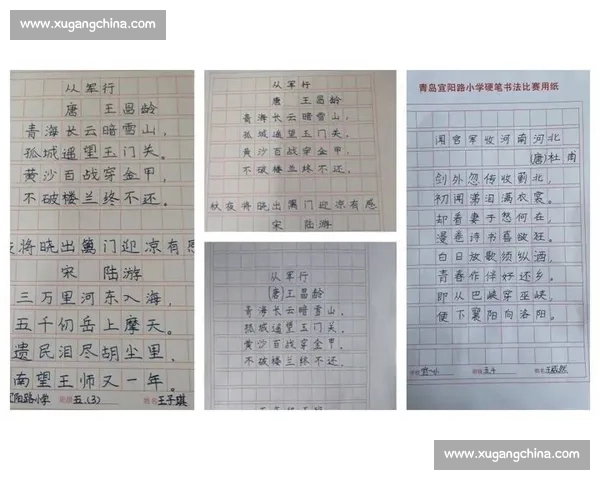 www.xugangchina.com
从军行
唐 王昌龄
青海长云暗雪山,
孤城遥望玉门关。
黄沙百战穿金甲,
不破楼兰终不还。
秋夜将晓出篱门迎凉有感
宋 陆游
三万里河东入海,
五千仞岳上摩天。
遗民泪尽胡尘里,
南望王师又一年。
宜阳路小学 班级 五.(3) 姓名 王子琪
从军行
唐 王昌龄
青海长云暗雪山,
孤城遥望玉门关。
黄沙百战穿金甲,
不破楼兰终不还.
秋夜将晓出篱门迎凉有感
宋 陆游
从军行
(唐)王昌龄
青海长云暗雪山,
孤城遥望玉门关。
黄沙百战穿金甲,
不破楼兰终不还。
青岛宜阳路小学硬笔书法比赛用纸
闻官军收河南河北
(唐)杜甫
剑外忽传收蓟北,
初闻涕泪满衣裳。
却看妻子愁何在,
漫卷诗书喜欲狂。
白日放歌须纵酒,
青春作伴好还乡。
即从巴峡穿巫峡,
便下襄阳向洛阳。
学校 班级 姓名
www.xugangchina.com